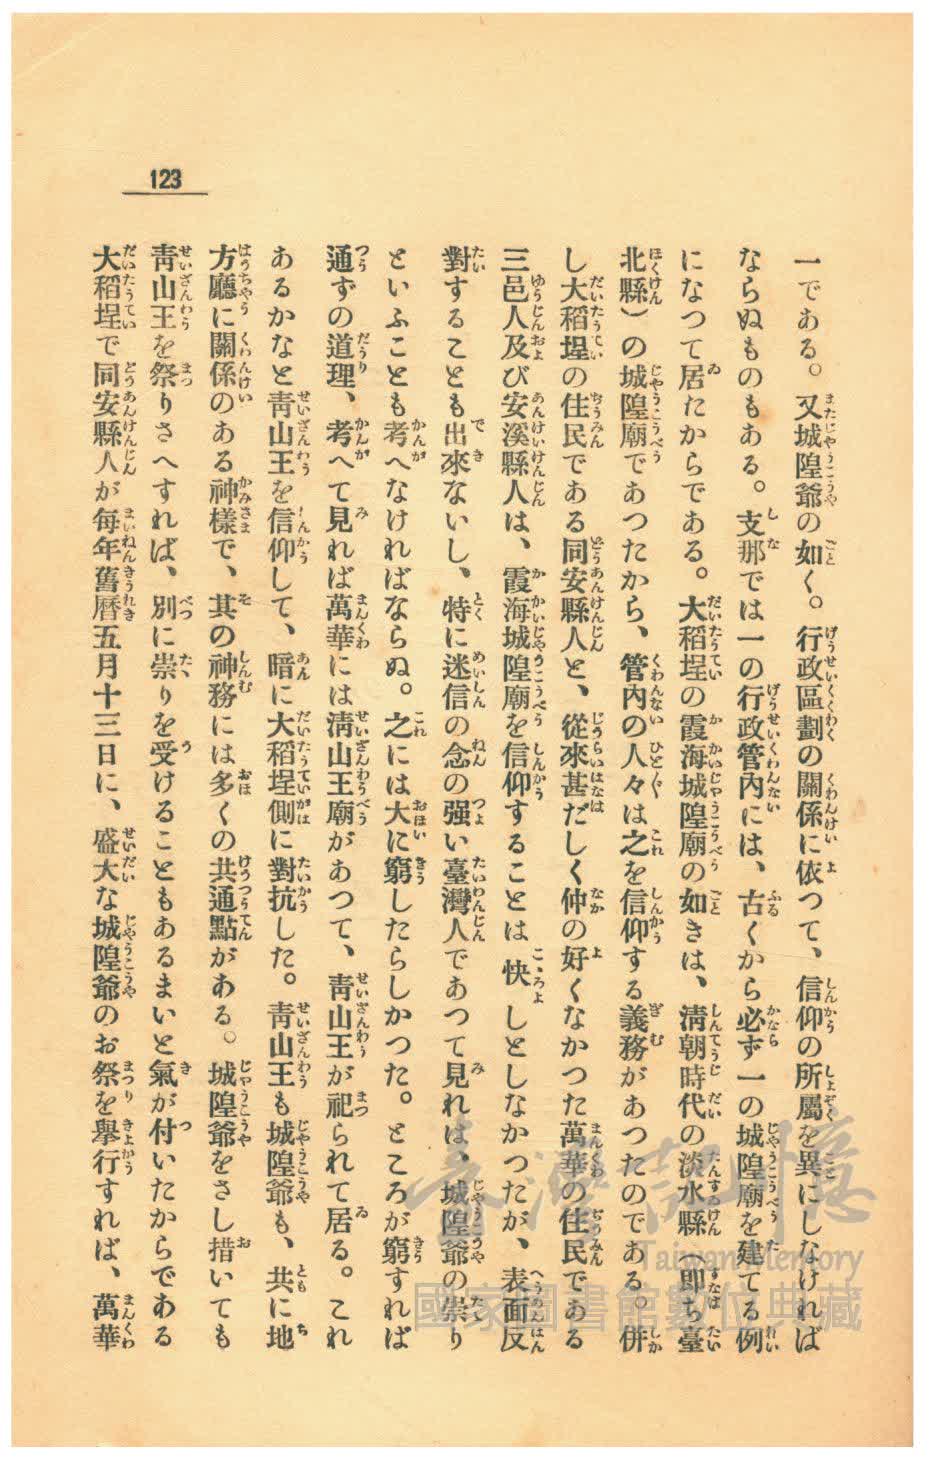 123
一である。又城隍爺の如く。行政區劃の關係に依つて、信仰の所屬を異にしなければ
ならぬものもある。支那では一の行政管內には、古くから必ず一の城隍廟を建てる例
になつて居たからである。大稻埕の霞海城隍廟の如きは、淸朝時代の淡水縣（卽ち臺
北縣）の城隍廟であつたから、管內の人々は之を信仰する義務があつたのである。併
し大稻埕の住民である同安縣人と、從來甚だしく仲の好くなかつた萬華の住民である
三邑人及び安溪縣人は、霞海城隍廟を信仰することは快しとしなかつたが、表面反
對することも出來ないし、特に迷信の念の强い臺灣人であつて見れは、城隍爺の崇り
といふことも考へなければならぬ。之には大に窮したらしかつた。ところが窮すれば
通ずの道理、考へて見れば萬華には淸山王廟があつて、靑山王が祀られて居る。これ
あるかなと靑山王を信仰して、暗に大稻埕側に對抗した。靑山王も城隍爺も、共に地
方廳に關係のある神樣で、其の神務には多くの共通點がある。城隍爺をさし措いても
靑山王を祭りさへすれば、別に崇りを受けることもあるまいと氣が付いたからである
大稻埕で同安縣人が每年舊曆五月十三日に、盛大な城隍爺のお祭を擧行すれば、萬華
臺灣記憶
Taiwan Memory
國家圖書館數位典藏